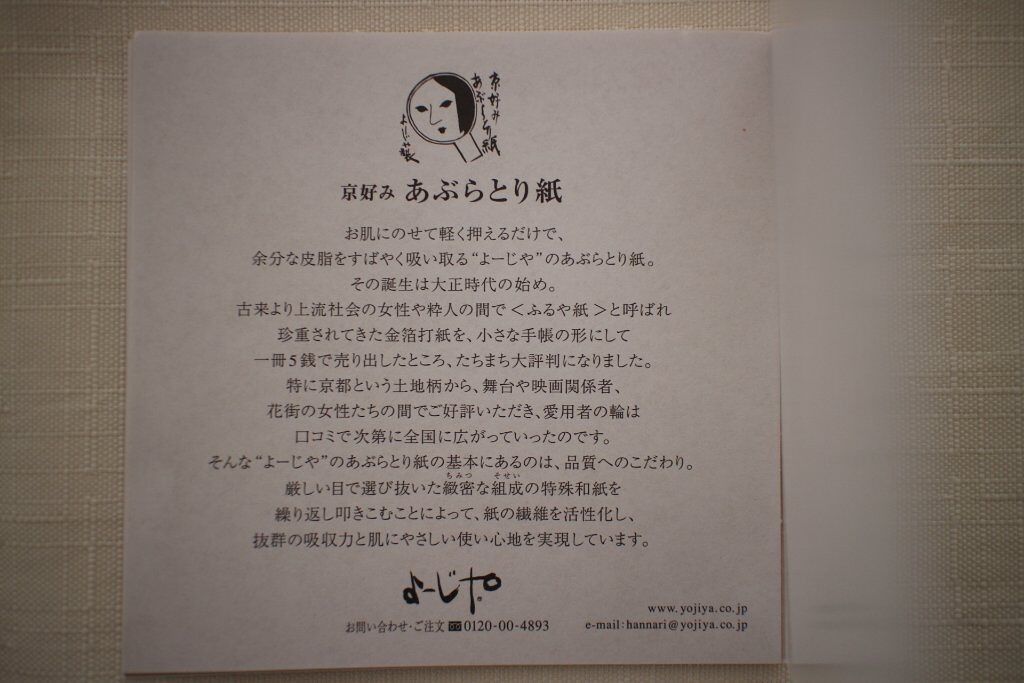 京好み
あぶらとり紙
よーじや製
京好み あぶらとり紙
お肌にのせて軽く押えるだけで、
余分な皮脂をすばやく吸い取る“よーじや”のあぶらとり紙。
その誕生は大正時代の始め。
古来より上流社会の女性や粋人の間で＜ふるや紙＞と呼ばれ
珍重されてきた金箔打紙を、小さな手帳の形にして
一冊5銭で売り出したところ、たちまち大評判になりました。
特に京都という土地柄から、舞台や映画関係者、
花街の女性たちの間でご好評いただき、愛用者の輪は
口コミで次第に全国に広がっていったのです。
そんな“よーじや”のあぶらとり紙の基本にあるのは、品質へのこだわり。
ちみつ そせい
厳しい目で選び抜いた緻密な組成の特殊和紙を
繰り返し叩きこむことによって、紙の繊維を活性化し、
抜群の吸収力と肌にやさしい使い心地を実現しています。
よーじや®
www.yojiya.co.jp
お問い合わせ・ご注文 0120-00-4893 e-mail:hannari@yojiya.co.jp